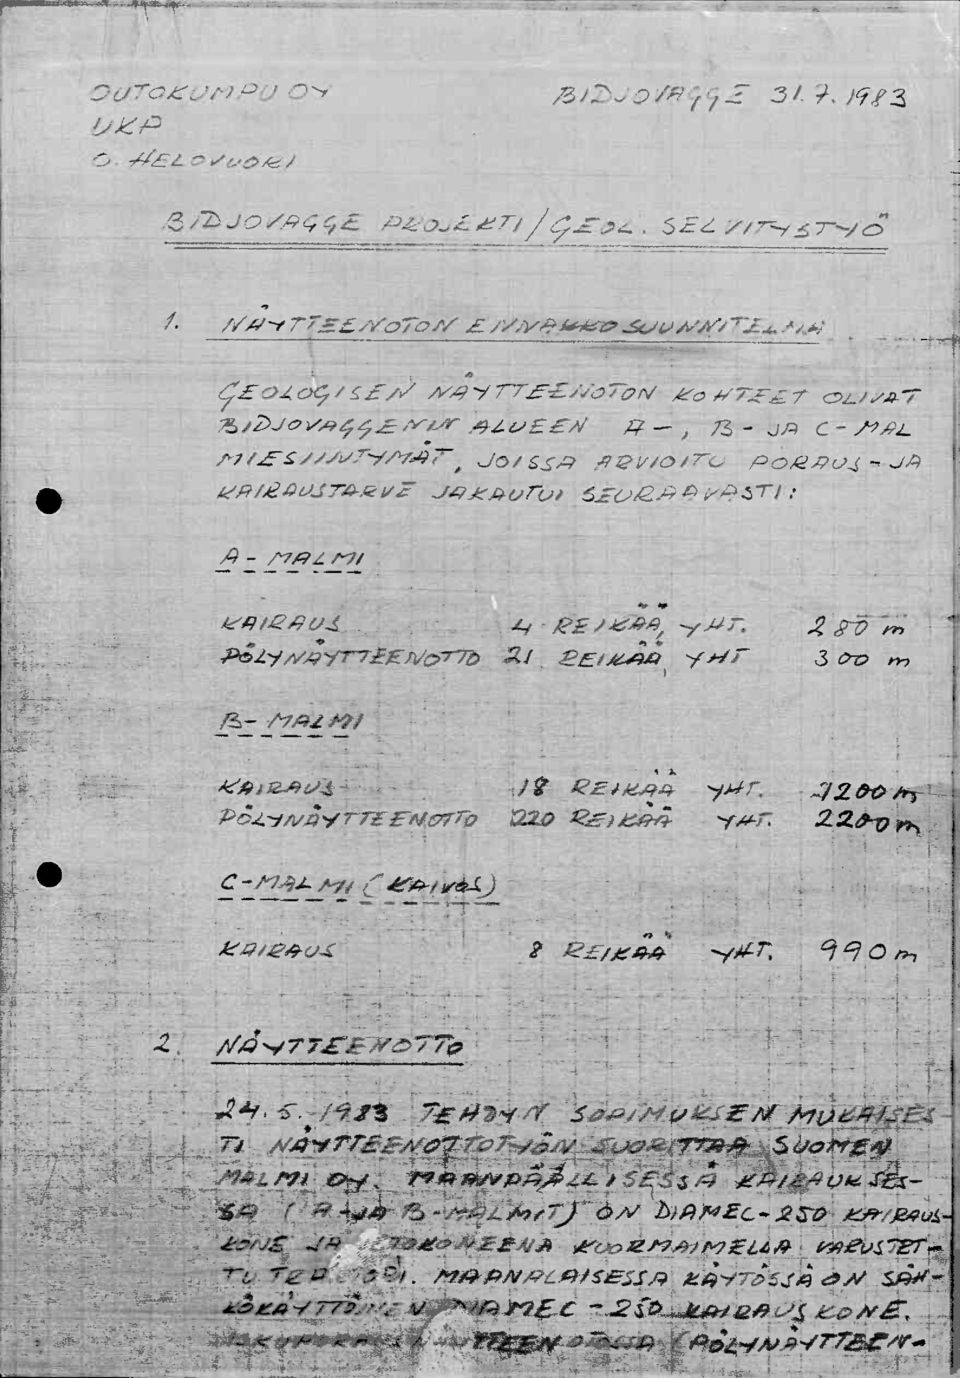 OUTOKUMPU OY BIDJOVAGGE 31.7.1983
UKP
O. HELOVUORI
BIDJOVAGGE PROJEKTI/GEOL. SELVITYSTYÖ
1. NÄYTTEENOTON ENNAKKOSUUNNITELMA
GEOLOGISEN NÄYTTEENOTON KOHTEET OLIVAT
BIDJOVAGGENIN ALUEEN A-, B- JA C-MAL
MIESIINTYMÄT, JOISSA ARVIOITU PORAUS- JA
KAIRAUSTARVE JAKAUTUI SEURAAVASTI:
A-MALMI
KAIRAUS 4 REIKÄÄ, YHT. 280 m
PÖLYNÄYTTEENOTTO 21 REIKÄÄ, YHT 300 m
B-MALMI
KAIRAUS 18 REIKÄÄ YHT. 1200 m
PÖLYNÄYTTEENOTTO 220 REIKÄÄ YHT. 2200 m
C-MALMI (KAIVOS)
KAIRAUS 8 REIKÄÄ YHT. 990 m
2. NÄYTTEENOTTO
24.5.-1983 TEHDYN SOPIMUKSEN MUKAISES
TI NÄYTTEENOTTOTYÖN SUORITTAA SUOMEN
MALMI OY. MAANPÄÄLLISESSÄ KAIRAUKSES-
SA (A- JA B-MALMIT) ON DIAMEC-250 KAIRAUS-
KONE JA VETOKONEENA KUORMAIMELLA VARUSTET-
TU TRAKTORI. MAANALAISESSA KÄYTÖSSÄ ON SÄH-
KÖKÄYTTÖINEN DIAMEC-250 KAIRAUSKONE.
(PÖLYNÄYTTEEN-